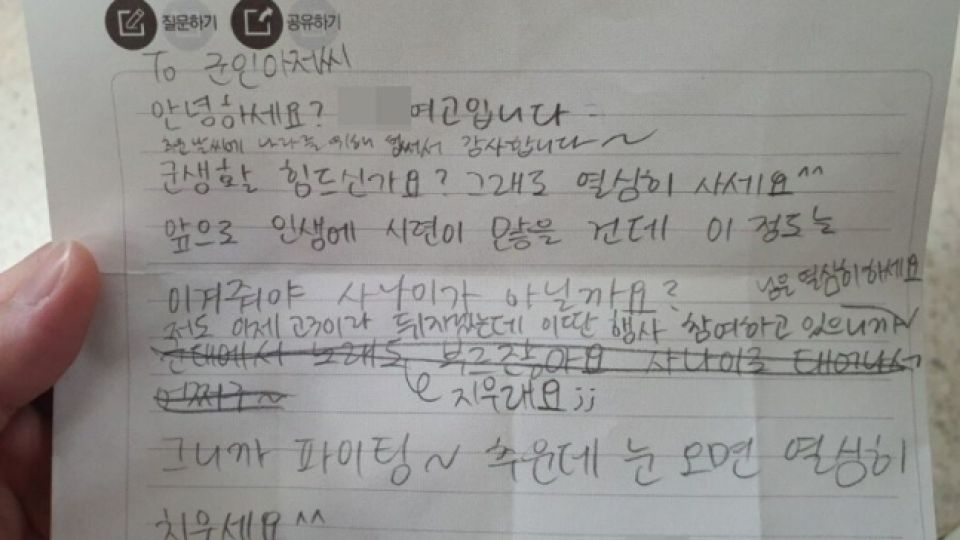 질문하기 공유하기
To 군인아저씨
안녕하세요? 여고입니다
추운날씨에 나라를 위해 힘써서 감사합니다~
군생활 힘드신가요? 그래도 열심히 사세요^^
앞으로 인생에 시련이 많을 건데 이 정도는
이겨줘야 사나이가 아닐까요?
님은 열심히하세요
저도 이제 고3이라 뒤지겠는데 이딴 행사 참여하고 있으니까
군대에서 노래도 부르잖아요 사나이로 태어나서
어쩌구~
지우래요;;
그니까 파이팅~ 추운데 눈 오면 열심히
치우세요^^